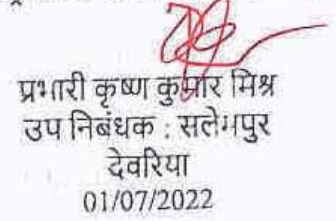 प्रभारी कृष्ण कुमार मिश्र
उप निबंधक : सलेमपुर
देवरिया
01/07/2022